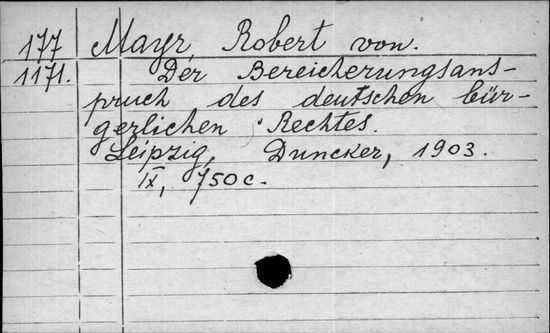 177 Mayr, Robert von.
1171. Der Bereicherungsans-
pruch des deutschen bür-
gerlichen Rechtes.
Leipzig, Duncker, 1903.
IX, 750 c.